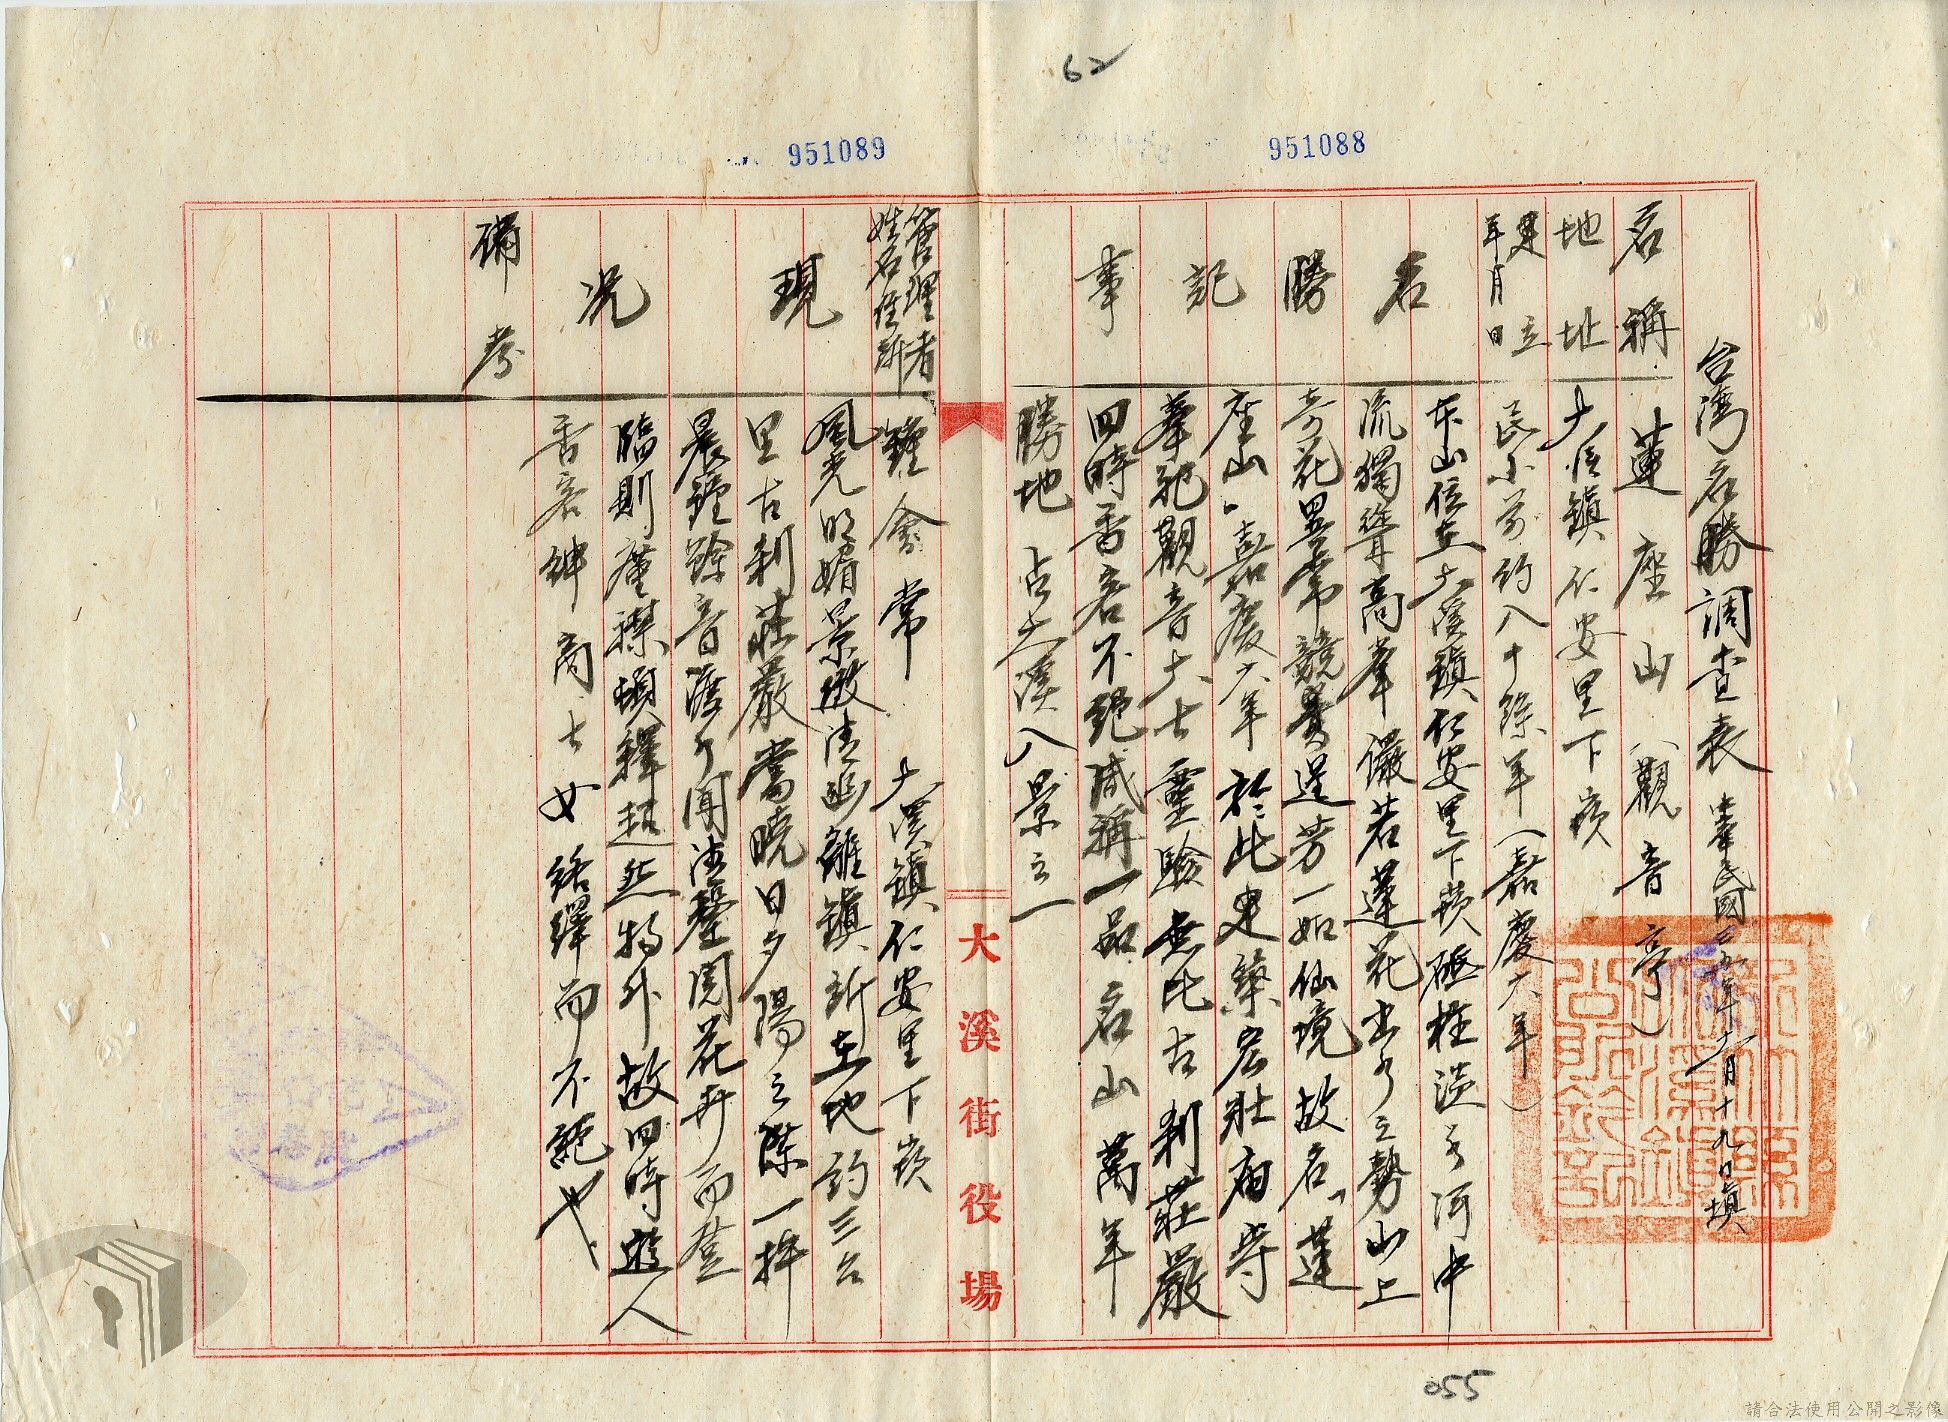 62
951088
951089
台灣名勝調查表 中華民國三五年十一月十九日填
名稱 蓮座山（觀音亭）
地址 大溪鎮仁安里下崁
建立年月日 民小前約八十餘年（嘉慶六年）
名勝記事 本山位在大溪鎮仁安里下崁砥柱淡水河中
流獨聳高峯儼若蓮花出水之勢山上
奇花異常競賽逞芳一如仙境故名「蓮
座山」嘉慶六年於此建築宏壯廟宇
奉祀觀音大士靈驗無比古刹莊嚴
四時香客不絕咸稱一品名山萬年
勝地 占大溪八景之一
大溪街役場
管理者姓名住所 鐘會常 大溪鎮仁安里下崁
現況 風光明媚景緻清幽離鎮所在地約三公
里古刹莊嚴當曉日夕陽之際一抹
晨鐘餘音渡水聞清磬閱花卉而登
臨則塵襟頓釋超然物外故四時遊人
香客紳商士女絡繹而不絕也
備考
055
請合法使用公開之影像